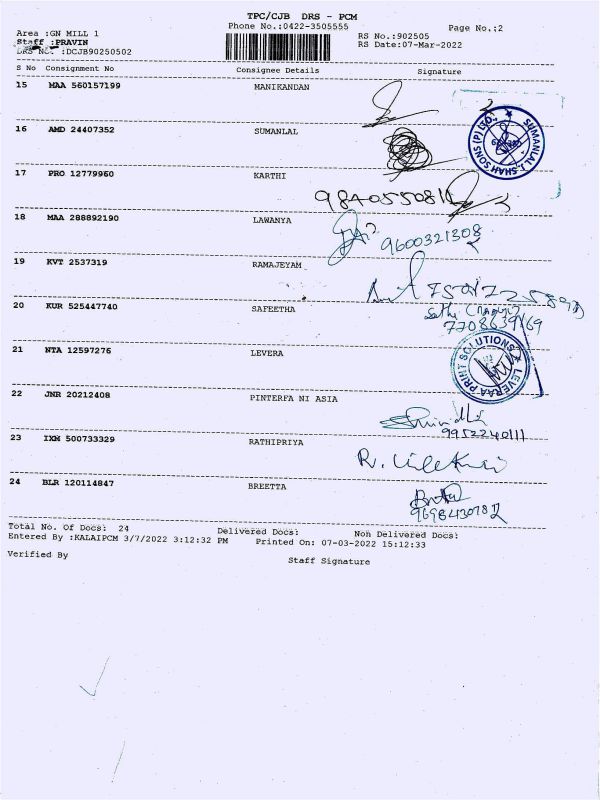 TPC/CJB DRS - PCM
Phone No.:0422-3505555 Page No.:2
Area :GN MILL 1 RS No.:902505
Staff :PRAVIN RS Date:07-Mar-2022
DRS No. :DCJB90250502
S No Consignment No Consignee Details Signature
15 MAA 560157199 MANIKANDAN
16 AMD 24407352 SUMANLAL
SUMANLAL J. SHAH SONS (P) LTD.
17 PRO 12779960 KARTHI
18 MAA 288892190 LAWANYA
9600321308
19 KVT 2537319 RAMAJEYAM
20 KUR 525447740 SAFEETHA
21 NTA 12597276 LEVERA
LEVERAA PRINT SOLUTIONS
22 JNR 20212408 PINTERFA NI ASIA
9952240111
23 IXM 500733329 RATHIPRIYA
24 BLR 120114847 BREETTA
Total No. Of Docs: 24 Delivered Docs: Non Delivered Docs:
Entered By :KALAIPCM 3/7/2022 3:12:32 PM Printed On: 07-03-2022 15:12:33
Verified By Staff Signature